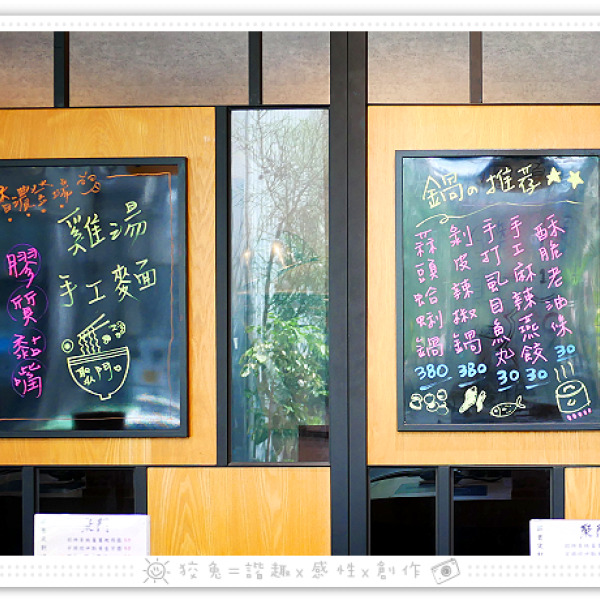 雞湯
手工麵面
聚門
膠質黏嘴
鍋の推荐
酥脆老油條 30
手工麻辣燕餃 30
手打虱目魚丸 30
剝皮辣椒鍋 380
蒜頭蛤蜊鍋 380
狡兔=諧趣x感性x創作